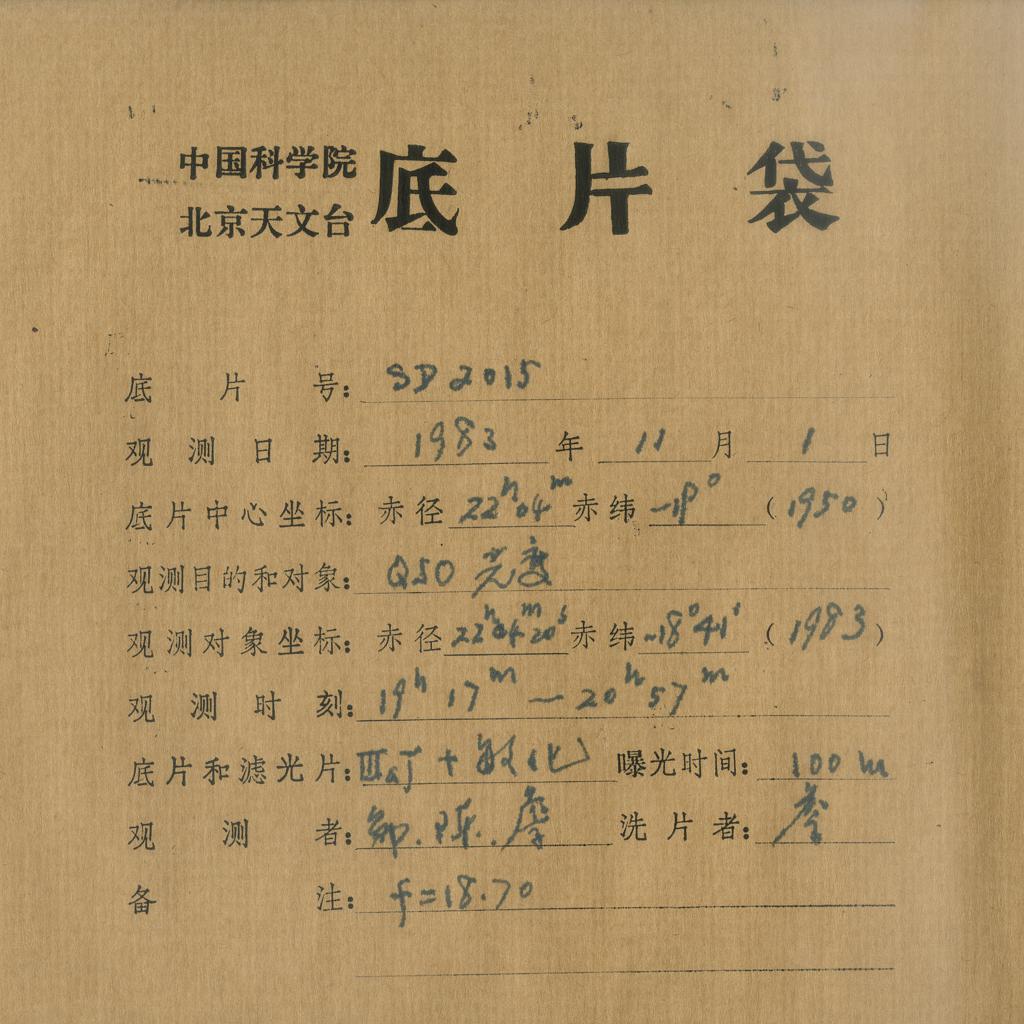 中国科学院
北京天文台
底片袋
底片号: SD 2015
观测日期: 1983 年 11 月 1 日
底片中心坐标: 赤径 22h04m 赤纬 -19° (1950)
观测目的和对象: QSO 光度
观测对象坐标: 赤径 22h04m20s 赤纬 -18°41' (1983)
观测时刻: 19h 17m — 20h 57m
底片和滤光片: IIIaJ + 敏化 曝光时间: 100 m
观测者: 邹. 陈. 洗片者:
备注: f=18.70